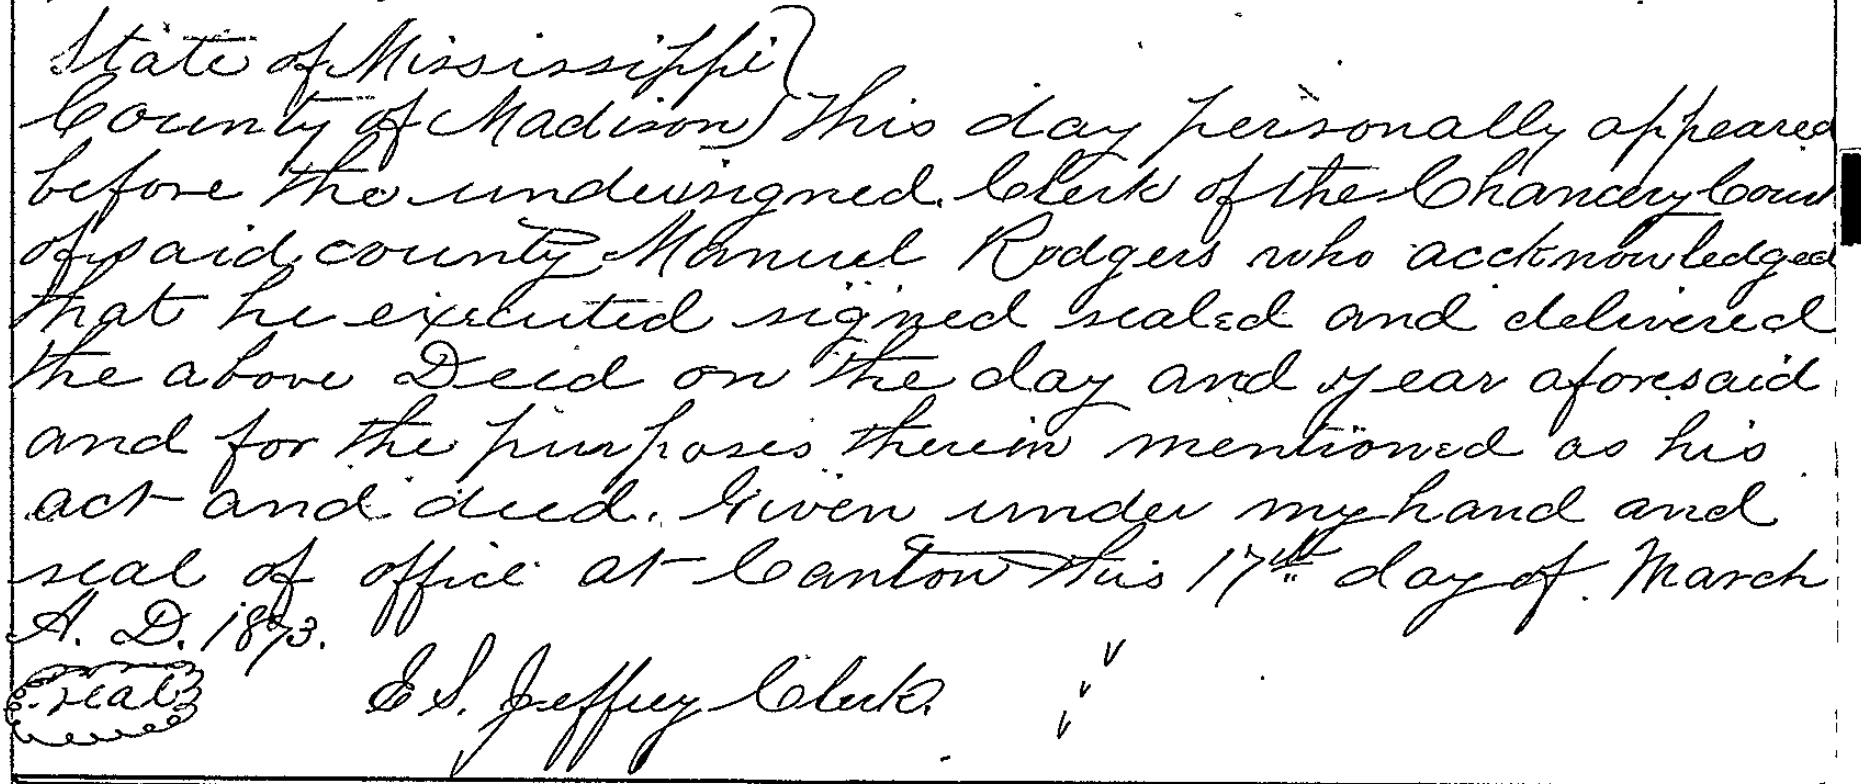 State of Mississippi
County of Madison) This day personally appeared
before the undersigned. Clerk of the Chancery Court
of said county Manuel Rodgers who accknowledged
that he executed signed sealed and delivered
the above Deed on the day and year aforesaid
and for the purposes therein mentioned as his
act and deed. Given under my hand and
seal of office at Canton this 17th day of March
A. D. 1873.
seal E S. Jeffrey Clerk.